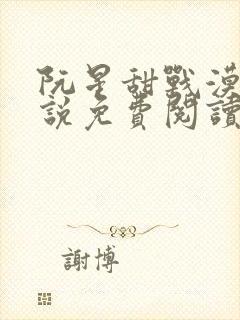 阮星甜戰漠
說免費閱讀
謝博